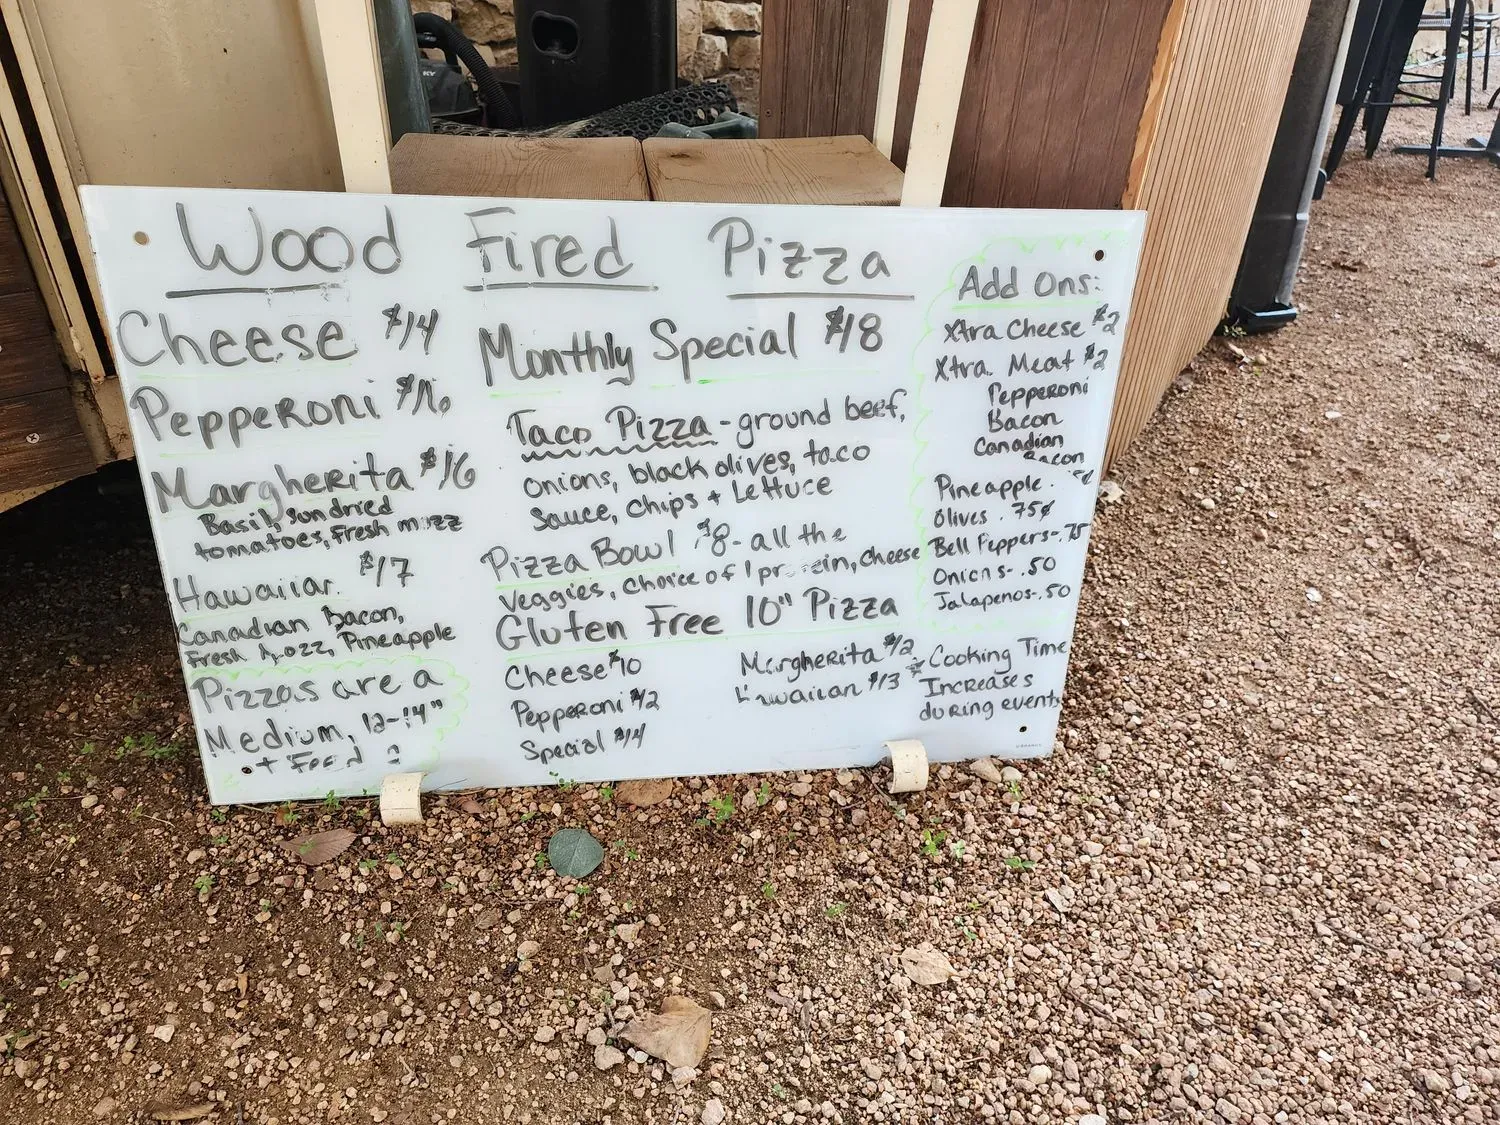 Wood Fired Pizza
Cheese $14
Pepperoni $16
Margherita $16
Basil, Sundried
tomatoes, Fresh mozz
Hawaiian $17
Canadian Bacon,
Fresh Mozz, Pineapple
Pizzas are a
Medium, 12-14"
+ Feed
Monthly Special $18
Taco Pizza - ground beef,
onions, black olives, taco
Sauce, chips + Lettuce
Pizza Bowl $8 - all the
veggies, choice of 1 protein, cheese
Gluten Free 10" Pizza
Cheese $10
Pepperoni $12
Special $14
Margherita $12
Hawaiian $13
Add Ons:
Xtra Cheese $2
Xtra. Meat $2
Pepperoni
Bacon
Canadian
Bacon
Pineapple.
Olives . 75¢
Bell Peppers-. 75
Onions-. 50
Jalapenos-. 50
* Cooking Time
Increases
during events